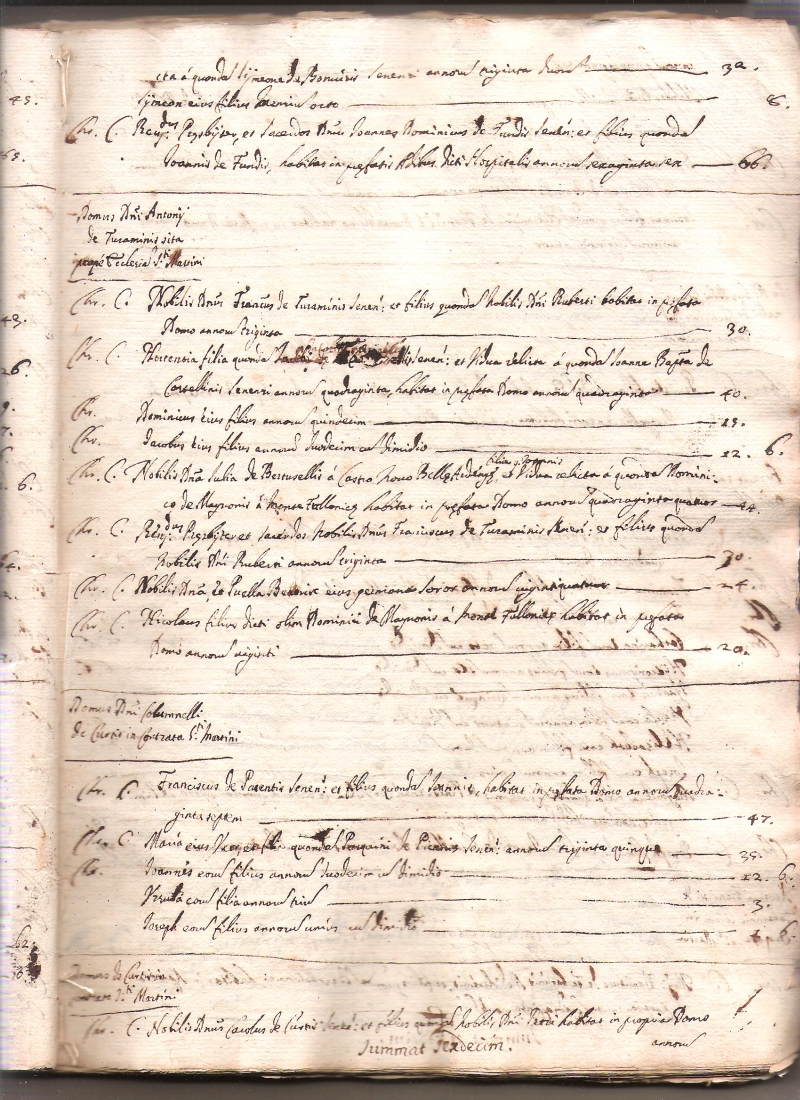 cta á quonda Symeone de Bonucijs Senensi annorũ triginta duorũ 32.
Symeon eius filius mensiũ octo 8.
Chr. C. Reu.dus Presbyter, et Sacerdos Dñus Joannes Dominicus de Fundis Senen: et filius quonda
Joannis de Fundis, habitat in prefatis Aedibus dicti Hospitalis annorũ sexaginta sex 66.
Domus Dñi Antonij
de Turaminis sita
prope Ecclesiã S.ti Martini
Chr. C. Nobilis Dñus Francus de Turaminis Senen: et filius quonda Nobilis Dñi Ruberti habitat in prefata
Domo annorũ triginta 30.
Chr. C. Hortensia filia quonda Senen: et Vidua relicta á quonda Joanne Bapta de
Corsellinis Senensi annorũ quadraginta, habitat in prefata Domo annorũ quadraginta 40.
Chr. Dominicus eius filius annorũ quindecim 15.
Chr. Jacobus eius filius annorũ duodecim cũ dimidio 12. 6.
filia q. Joannis
Chr. C. Nobilis Dña Julia de á Castro et Vidua relicta á quonda Domini-
co de Maynonis á Monte Follonico habitat in prefata Domo annorũ quadraginta quatuor 44.
Chr. C. Reu.dus Presbyter et Sacerdos Nobilis Dñus Franciscus de Turaminis Senen: et filius quonda
Nobilis Dñi Ruberti annorũ triginta 30.
Chr. C. Nobilis Dña, et Puella eius germana soror annorũ vigintiquatuor 24.
Chr. C. Nicolaus filius dicti olim Dominici de Maynonis á Monte Follonico habitat in prefata
Domo annorũ viginti 20.
Domus Dñi Columnelli
de Curtis in Contrata S.ti Martini
Chr. C. Franciscus de Parentis Senen: et filius quonda Joannis, habitat in prefata Domo annorũ quadra-
ginta septem 47.
Chr. C. Maria eius Uxor et filia quonda Pasquini de Senen: annorũ triginta quinque 35.
Chr. Joannes eorũ filius annorũ duodecim cũ dimidio 12. 6.
Ursula eorũ filia annorũ triũ 3.
Joseph eorũ filius annorũ unius cũ dimidio 1. 6.
Domus de Curtis in
contrata S.ti Martini
Chr. C. Nobilis Dñus Carolus de Curtis Senen: et filius quonda Nobilis Dñi habitat in propria Domo
annorũ
Summat Sexdecim.